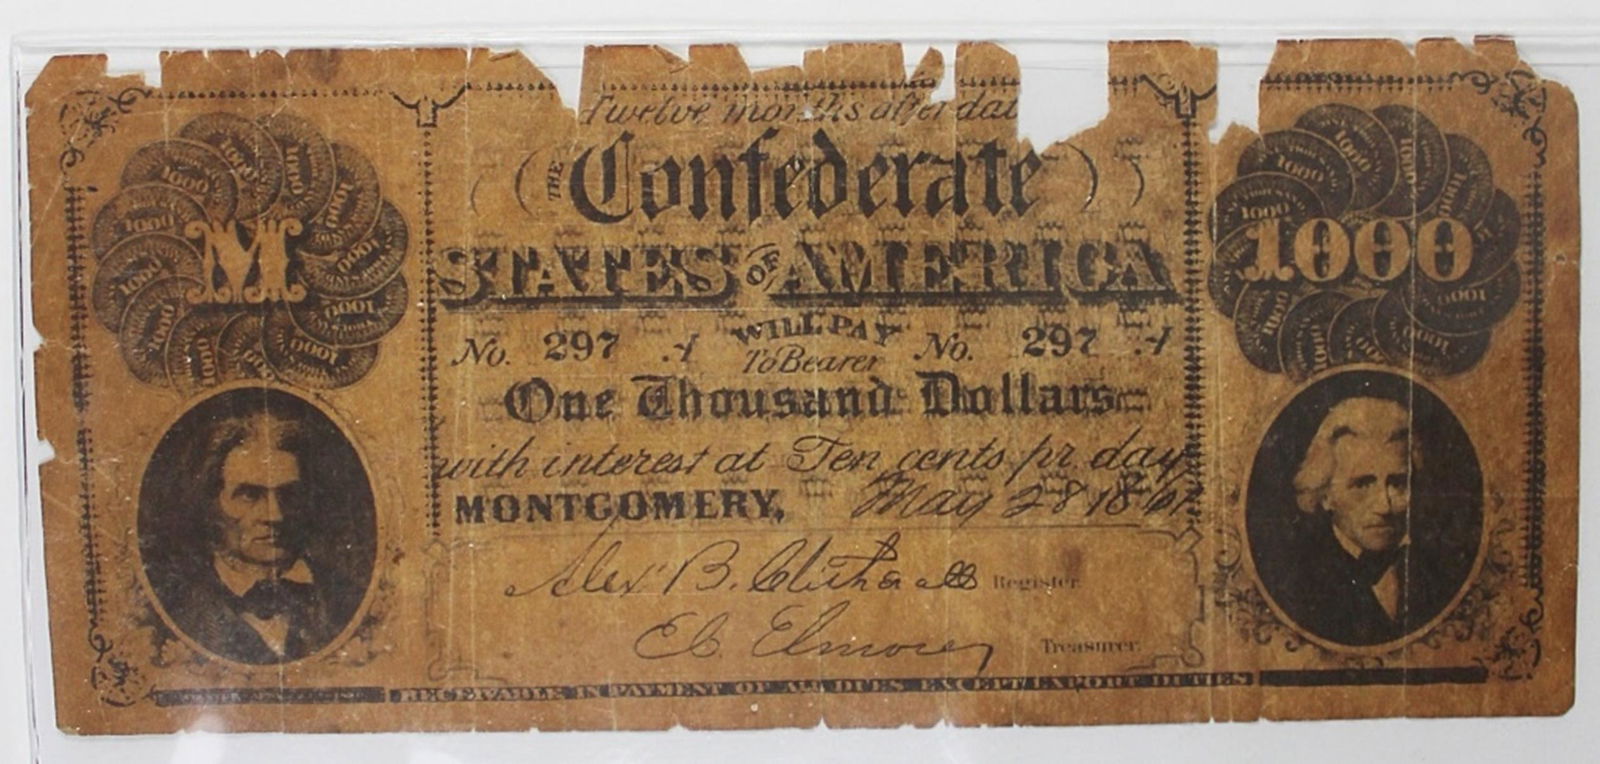 Twelve months after dat
THE Confederate
STATES OF AMERICA
M
1000
No. 297 A WILL PAY No. 297 A
To Bearer
One Thousand Dollars
with interest at Ten cents pr. day
MONTGOMERY, May 28 1861
Alex B. Register.
E.C. Elmore Treasurer.
RECEIVABLE IN PAYMENT OF ALL DUES EXCEPT EXPORT DUTIES